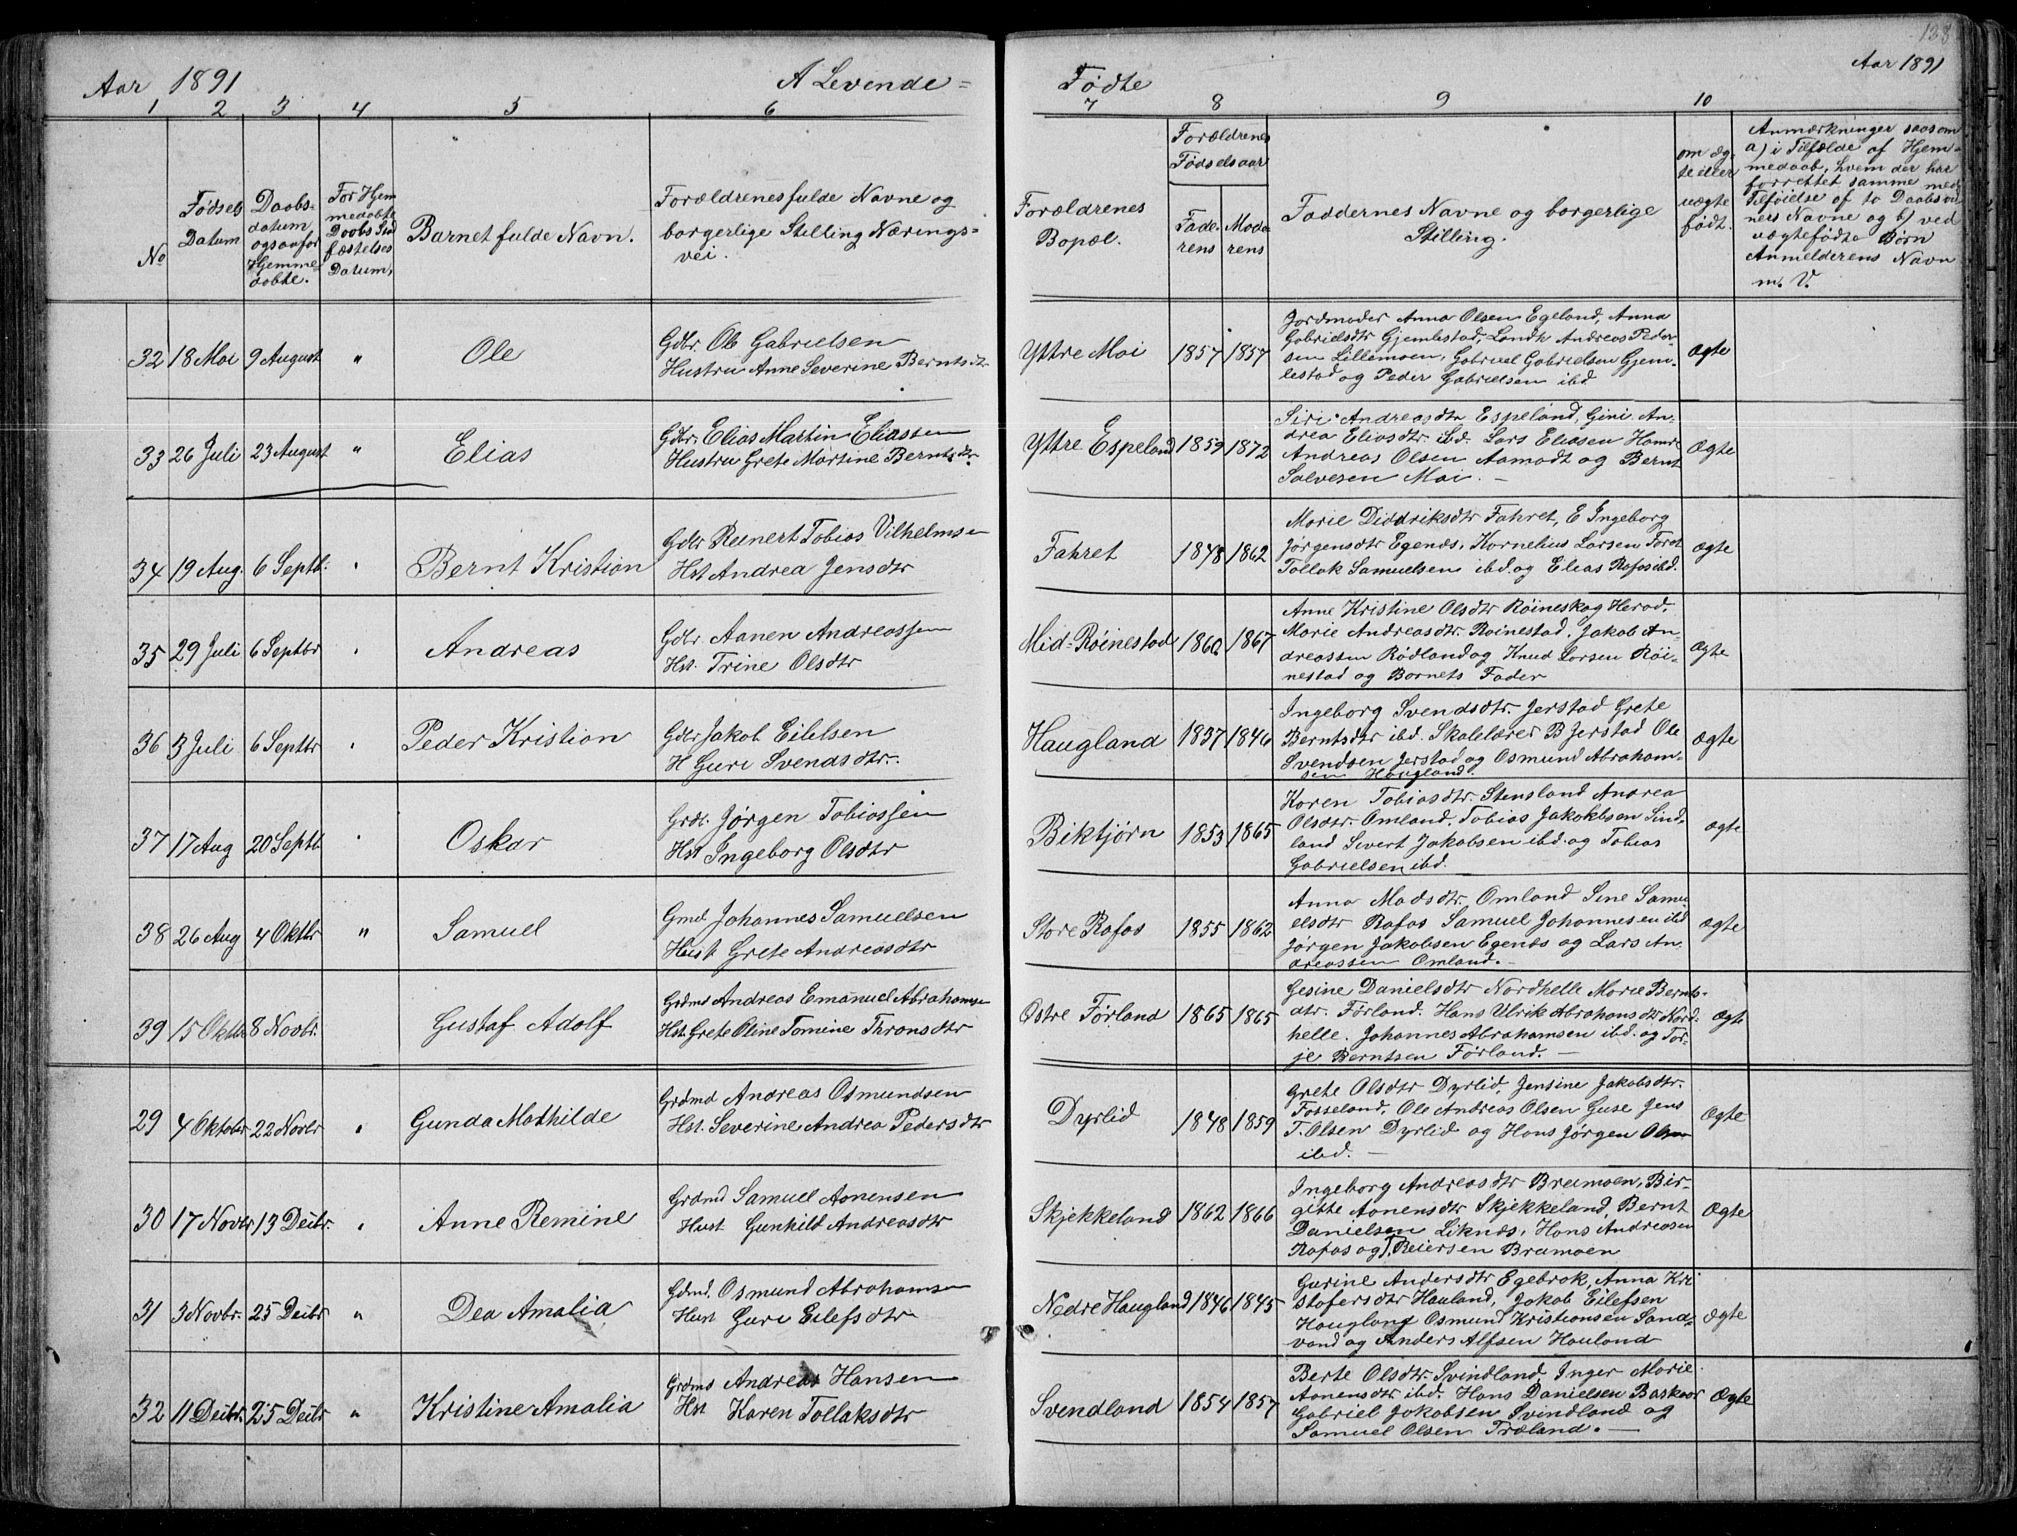 138
Aar 1891 A Levende=
Fødte Aar 1891
1 2 3 4 5 6
7 8 9 10
No
Fødsels Datum
Daabs-
datum
ogsaa for
Hjemme-
døbte.
For Hjem
medøbte
Daabs Stad
fæstelses
Datum,
Barnet fulde Navn.
Forældrenes fulde Navne og
borgerlige Stilling Nærings=
vei.
Forældrenes
Bopæl.
Forældrenes
Fødselsaar
Fade-
rens
Mode
rens
Faddernes Navne og borgerlige
Stilling.
om æg-
te eller
uægte
født.
Anmærkninger saasom
a) i Tilfælde af Hjem-
medaab, hvem der har
forrettet samme med
Tilføielse af to Daabsvid
ners Navne og b) ved
uægtefødte Børn
Anmelderens Navn
m. V.
32 18 Mai 9 August " Ole
Gdbr. Ole Gabrielsen
Hustru Anne Severine Berntsdtr
Yttre Moi 1857 1857
Jordmoder Anna Olsen Egeland, Anna
Gabrielsdtr Gjemlestad, Landh Andreas Peder-
sen Lillemoen, Gabriel Gabrielsen Gjem-
lestad og Peder Gabrielsen ibd
Ægte
33 26 Juli 23 August " Elias
Gdbr. Elias Martin Eliassen
Hustru Grete Martine Berntsdtr.
Yttre Espeland 1859 1872
Siri Andreasdtr Espeland, Gini An-
drea Eliasdtr. ibd. Lars Eliasen Hamr.
Andreas Olsen Aamodt og Bernt
Salvesen Moi. -
Ægte
34 19 Aug. 6 Septb. " Bernt Kristian
Gdbr Reinert Tobias Vilhelmsen
Hst Andrea Jensdtr
Fahret 1848 1862
Marie Diddriksdtr Fahret, E Ingeborg
Jørgensdtr Egenes, Kornelius Larsen Foret
Tollak Samuelsen ibd. og Elias Rafos ibd.
Ægte
35 29 Juli 6 Septbr " Andreas
Gdbr Aanen Andreassen
Hst. Trine Olsdtr
Mid-Røinestad 1860 1867
Anne Kristine Olsdtr Røineskog Herad,
Marie Andreasdtr. Røinestad, Jakob An-
dreassen Rødland og Knud Larsen Røi-
nestad og Barnets Fader
Ægte
36 3 Juli 6 Septbr " Peder Kristian
Gdbr Jakob Eilelsen
H Guri Svendsdtr.
Haugland 1837 1846
Ingeborg Svendsdtr. Jerstad Grete
Berntsdtr ibd. Skolelærer B Jerstad Ole
Svendsen Jerstad og Osmund Abraham-
sen Haugland.
Ægte
37 17 Aug 20 Septb. " Oskar
Grdr. Jørgen Tobiassen
Hst Ingeborg Olsdtr
Biktjørn 1853 1865
Karen Tobiasdtr. Stensland Andrea
Olsdtr. Omland. Tobias Jakobsen Sind-
land Sivert Jakobsen ibd. og Tobias
Gabrielsen ibd.
Ægte
38 26 Aug 4 Oktbr " Samuel
Gmd Johannes Samuelsen
Hust Grete Andreasdtr
Store Rafos 1855 1862
Anna Madsdtr Omland Sine Samu
elsdtr Rafos Samuel Johannesen ibd
Jørgen Jakobsen Egenæs og Lars An.
dreassen Omland. -
Ægte
39 15 Oktbr 8 Novbr. Gustaf Adolf
Grdmd Andreas Emanuel Abrahamsen
Hst. Grete Oline Tomine Thronsdtr
Østre Førland 1865 1865
Gesine Danielsdtr Nordhelle Marie Bernts-
dtr. Førland. Hans Ulrik Abrahamsdtr Nord-
helle. Johannes Abrahamsen ibd. og Tor-
je Berntsen Førland. -
Ægte
29 4 Oktober 22 Novbr " Gunda Mathilde
Grdmd Andreas Osmundsen
Hst. Severine Andrea Pedersdtr
Dyrlid 1848 1859
Grete Olsdtr Dyrlid, Jensine Jakobsdtr.
Fosseland, Ole Andreas Olsen Guse Jens
T. Olsen Dyrlid og Hans Jørgen Olsen
ibd. -
Ægte
30 17 Novbr 13 Decbr. " Anne Remine
Grdmd Samuel Aanensen
Hust Gunhild Andreasdtr
Skjekkeland 1862 1866
Ingeborg Andreasdtr Bramoen, Bir-
gitte Aanensdtr Skjekkeland, Bernt
Danielsen Liknæs, Hans Andreasen
Rafos og T. Reiersen Bramoen
Ægte
31 3 Novbr. 25 Decbr " Dea Amalia
Gdmd. Osmund Abrahamsen
Hust Guri Eilefsdtr
Nedre Haugland 1846 1845
Gurine Andersdtr Egebrok, Anna Kri
stofersdtr Hauland, Jakob Eilefsen
Haugland Osmund Kristiansen Sand-
vand og Anders Alfsen Hauland
Ægte
32 11 Decbr. 25 Decbr " Kristine Amalia
Grdmd Andreas Hansen
Hst Karen Tollaksdtr
Svendland 1854 1857
Berte Olsdtr. Svindland, Inger Marie
Aanensdtr ibd. Hans Danielsen Baskaar
Gabriel Jakobsen Svindland og
Samuel Olsen Træland. -
Ægte